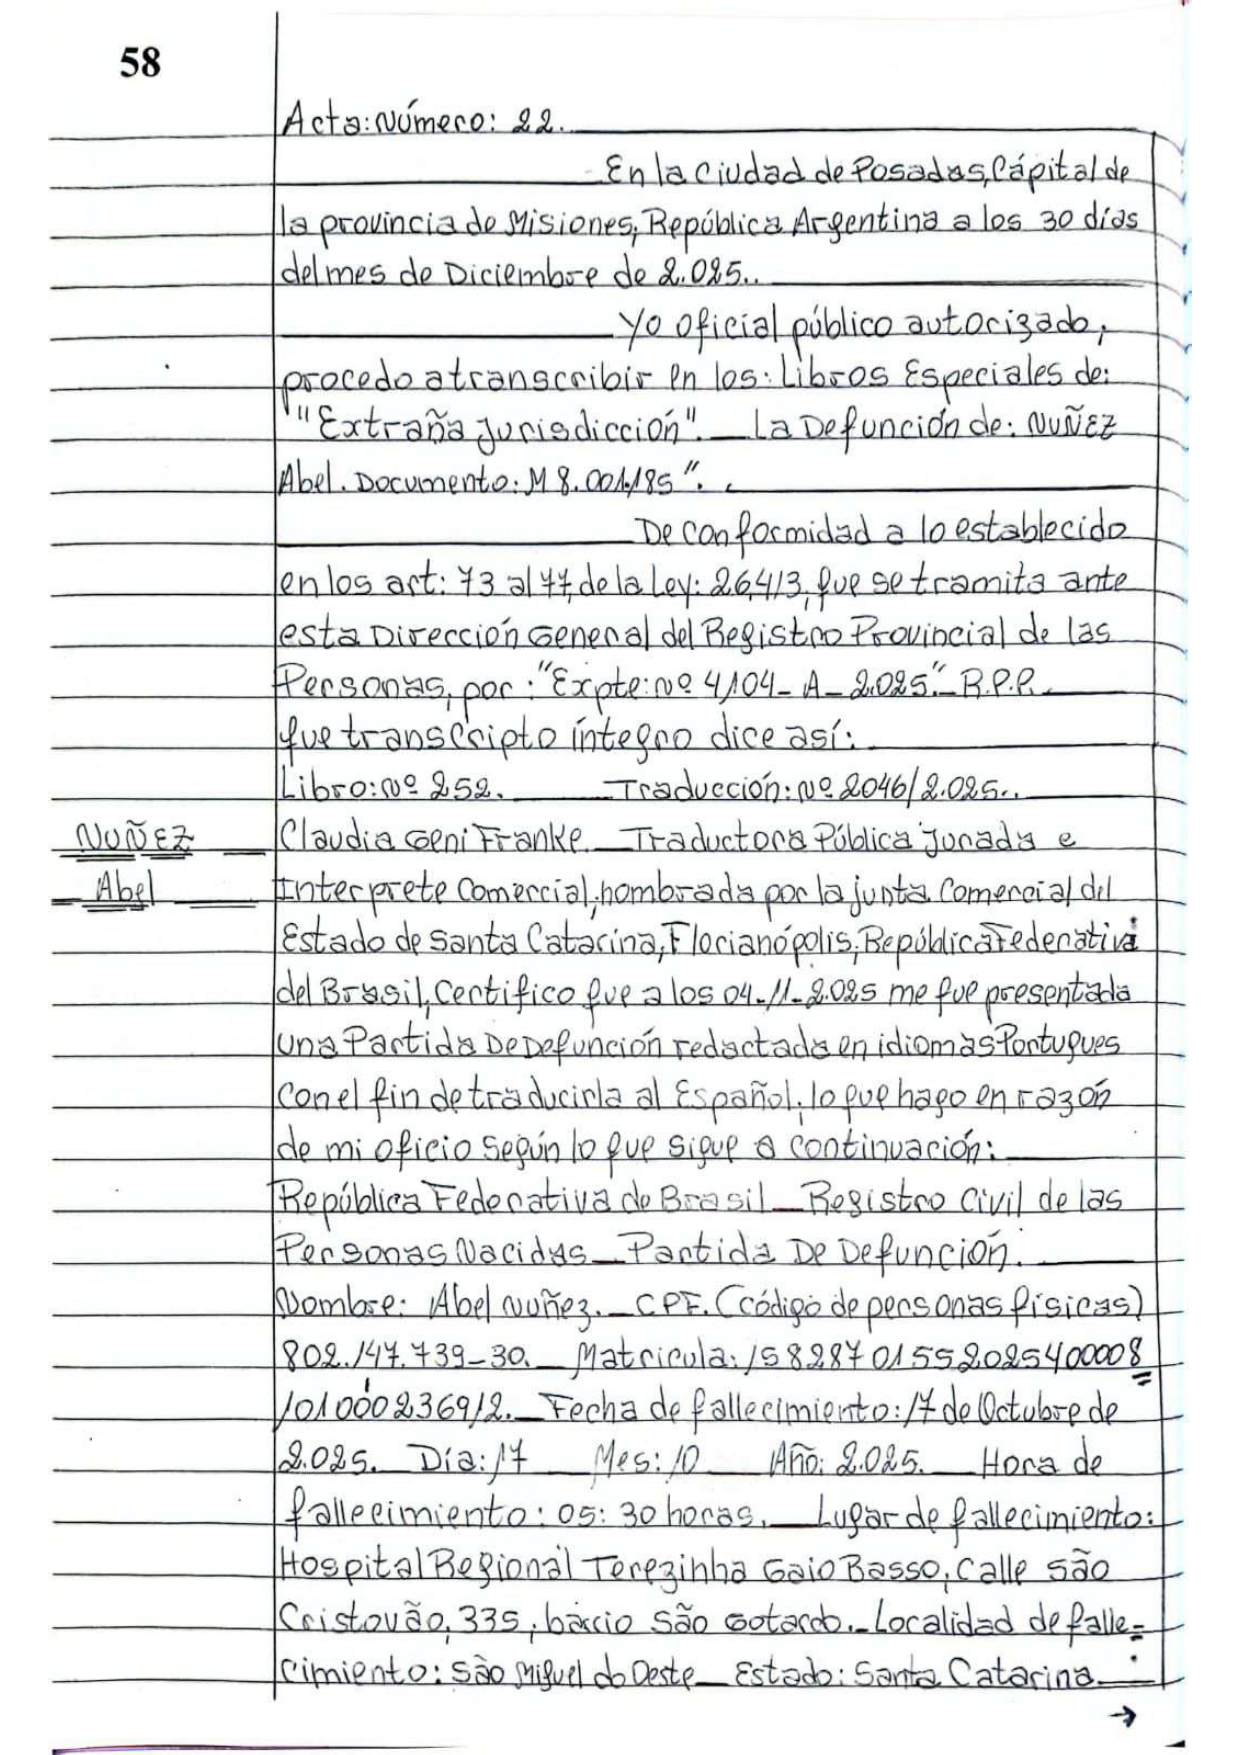 58
Acta: Número: 22.
En la Ciudad de Posadas, Cápital de
la provincia de Misiones, República Argentina a los 30 días
del mes de Diciembre de 2.025..
Yo oficial público autorizado,
procedo a transcribir en los: Libros Especiales de:
"Extraña Jurisdicción". La Defunción de: NUÑEZ
Abel. Documento: M 8.001.185".
De Conformidad a lo establecido
en los art: 73 al 77, de la Ley: 26.413, que se tramita ante
esta Dirección General del Registro Provincial de las
Personas, por: "Expte: Nº 4104-A-2.025." R.P.P.
que transcripto íntegro dice así:
Libro: Nº 252. Traducción: Nº 2046/2.025..
NUÑEZ Claudia Geni Franke. Traductora Pública Jurada e
Abel Interprete Comercial, nombrada por la junta Comercial del
Estado de Santa Catarina, Florianópolis, República Federativa
del Brasil, Certifico que a los 04-11-2.025 me fue presentada
una Partida De Defunción redactada en idiomas Portugues
Con el fin de traducirla al Español, lo que hago en razón
de mi oficio según lo que sigue a continuación:
República Federativa de Brasil Registro Civil de las
Personas Nacidas Partida De Defunción.
Nombre: Abel Nuñez. CPF. (código de personas físicas)
802.147.739-30. Matricula: 158287 0155 2025 4 00008
101 0002369 12. Fecha de fallecimiento: 17 de Octubre de
2.025. Día: 17 Mes: 10 Año: 2.025. Hora de
fallecimiento: 05:30 horas. Lugar de fallecimiento:
Hospital Regional Terezinha Gaio Basso, Calle São
Cristovão, 335, bárrio São Gotardo. Localidad de falle=
cimiento: São Miguel do Oeste Estado: Santa Catarina
→